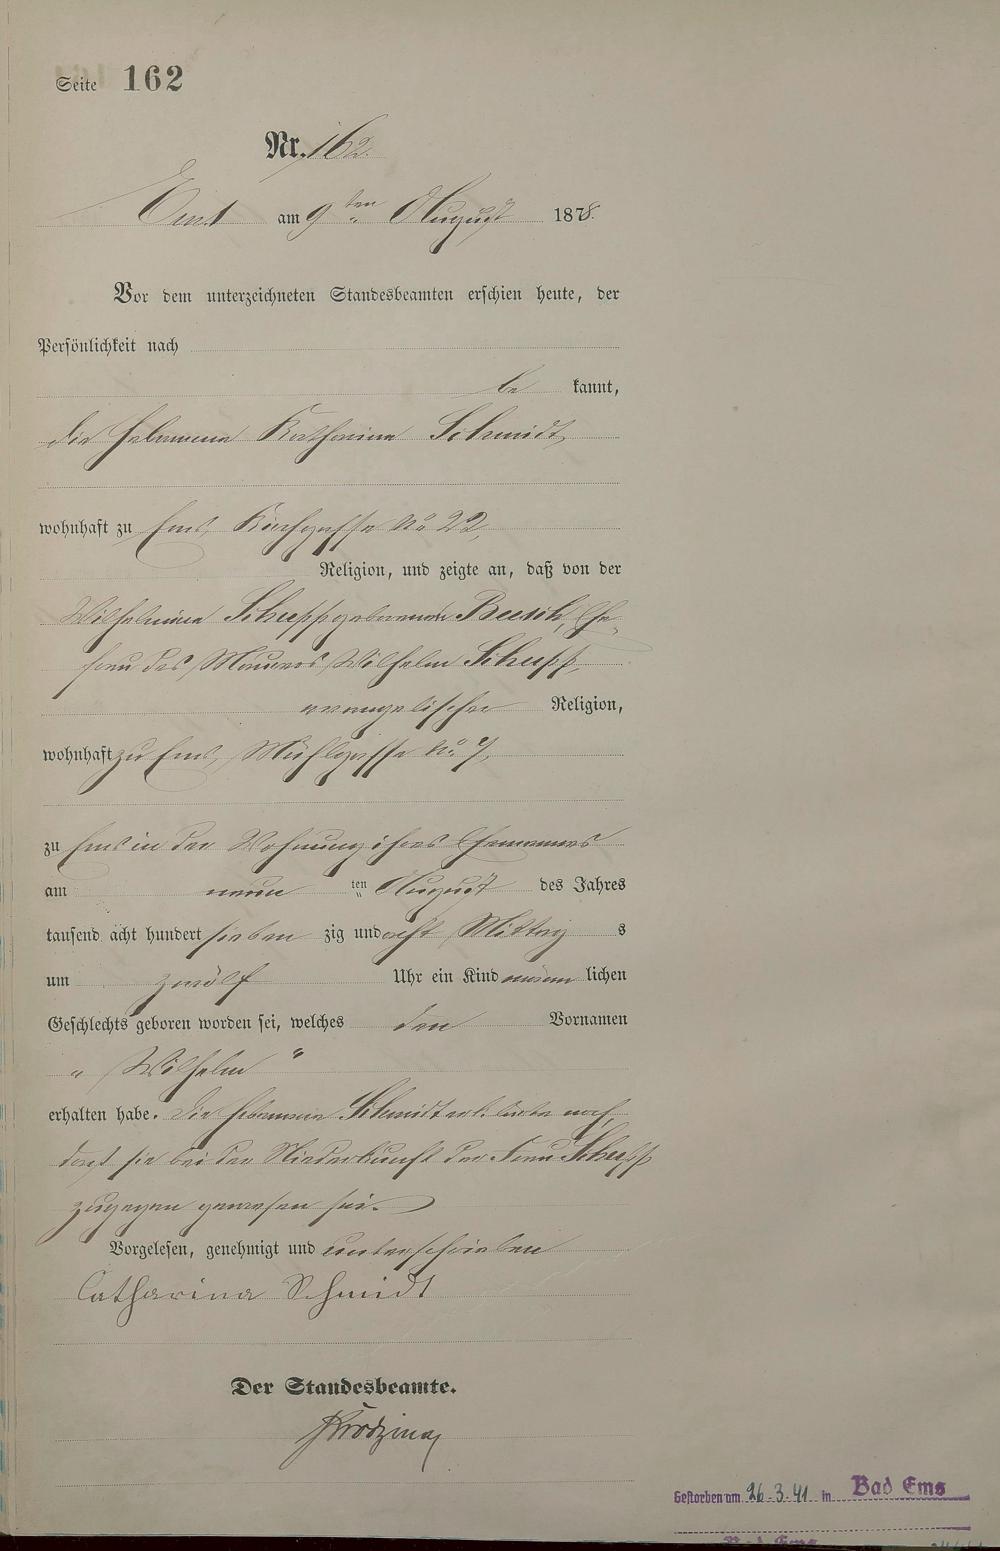 Seite 162
Nr. 162.
Ems am 9ten August 1878.
Vor dem unterzeichneten Standesbeamten erschien heute, der
Persönlichkeit nach
be kannt,
die Hebamme Katharina Schmidt,
wohnhaft zu Ems, Kirchgasse No 22,
Religion, und zeigte an, daß von der
Wilhelmine Schupp geborenen Beesch, Ehe-
frau des Maurers Wilhelm Schupp,
evangelischer Religion,
wohnhaft zu Ems, Mühlgasse No 7,
zu Ems in der Wohnung ihres Ehemannes
am neun ten August des Jahres
tausend acht hundert sieben zig und acht Mittag s
um zwölf Uhr ein Kind männ lichen
Geschlechts geboren worden sei, welches den Vornamen
„ Wilhelm “
erhalten habe. Die Hebamme Schmidt erklärte noch,
daß sie bei der Niederkunft der Frau Schupp
zugegen gewesen sei.
Vorgelesen, genehmigt und unterschrieben
Catharina Schmidt
Der Standesbeamte.
Gestorben am 26.3.41 in Bad Ems
Bad Ems